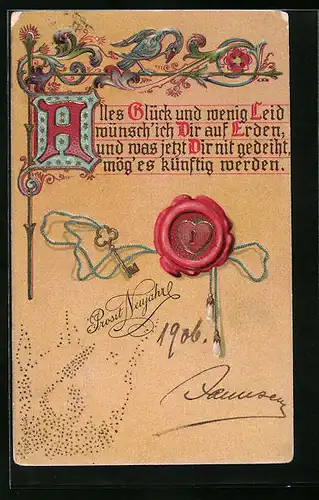 Alles Glück und wenig Leid
wünsch' ich Dir auf Erden,
und was jetzt Dir nit gedeiht,
mög' es künftig werden.
Prosit Neujahr
1906.